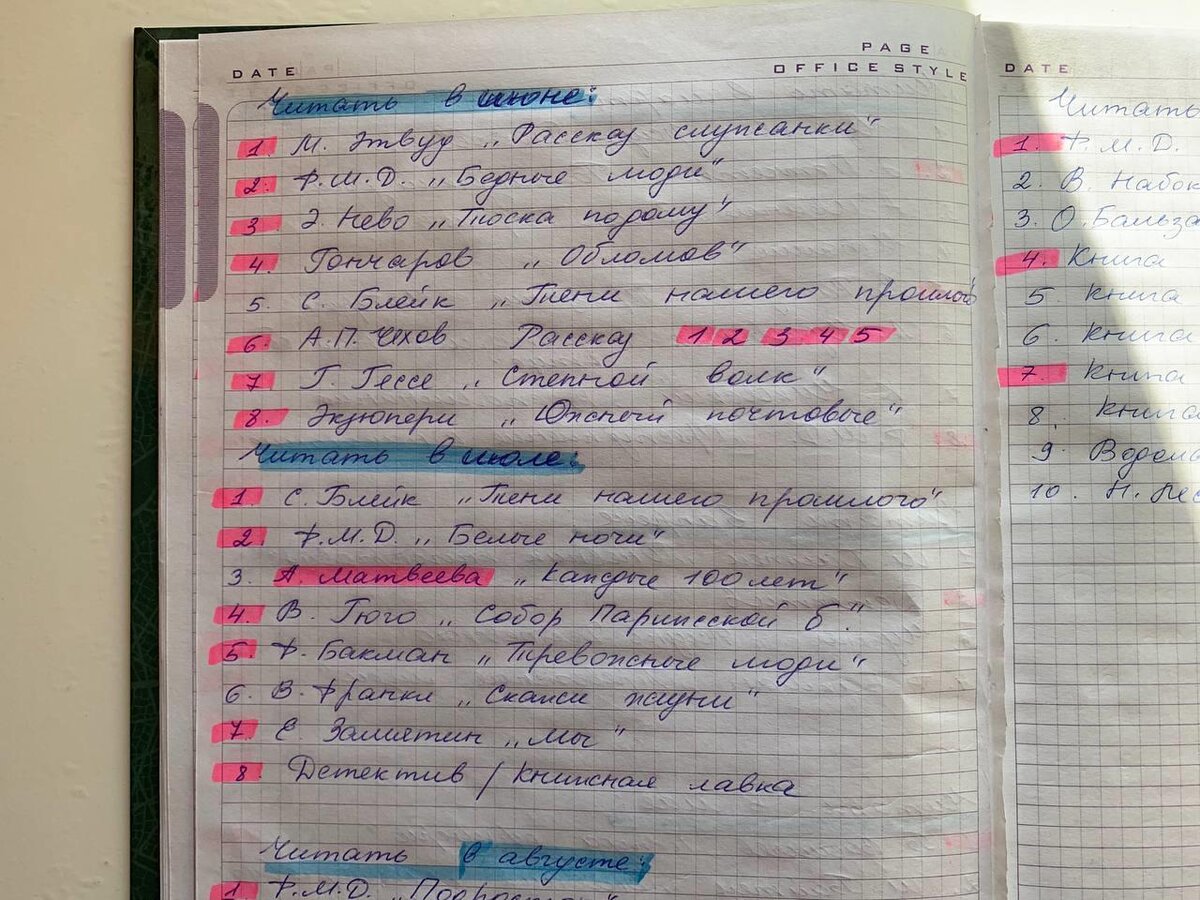 PAGE
DATE OFFICE STYLE
Читать в июне:
1. М. Этвуд „Рассказ служанки"
2. Ф.М.Д. „Бедные люди"
3 Э. Нево „Тоска по дому"
4. Гончаров „Обломов"
5. С. Блейк „Тени нашего прошлого
6. А.П. Чехов Рассказ 1 2 3 4 5
7 Г. Гессе „Степной волк"
8. Экзюпери „Южный почтовые"
Читать в июле:
1. С. Блейк „Тени нашего прошлого"
2. Ф.М.Д. „Белые ночи"
3. А. Матвеева „Каждые 100 лет"
4. В. Гюго „Собор Парижской б."
5. Ф. Бакман „Тревожные люди"
6. В. Франкл „Скажи жизни"
7. Е Замятин „Мы"
8. Детектив / Книжная лавка
Читать в августе:
1 Ф.М.Д.
DATE
Читать
1. Ф.М.Д.
2. В. Набок
3. О. Бальза
4. Книга
5 Книга
6. Книга
7. Книга
8. Книга
9. Водоль
10. Н. Лес